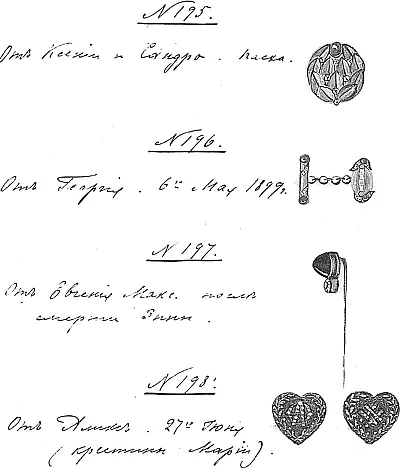 N 195.
Отъ Ксеніи и Сандро. Пасха.
N 196.
Отъ Георгія. 6го Мая 1899г.
N 197.
Отъ Евгенія Макс. послѣ
смерти Зины.
N 198.
Отъ Аликъ. 27го Іюня
(крестины Маріи).